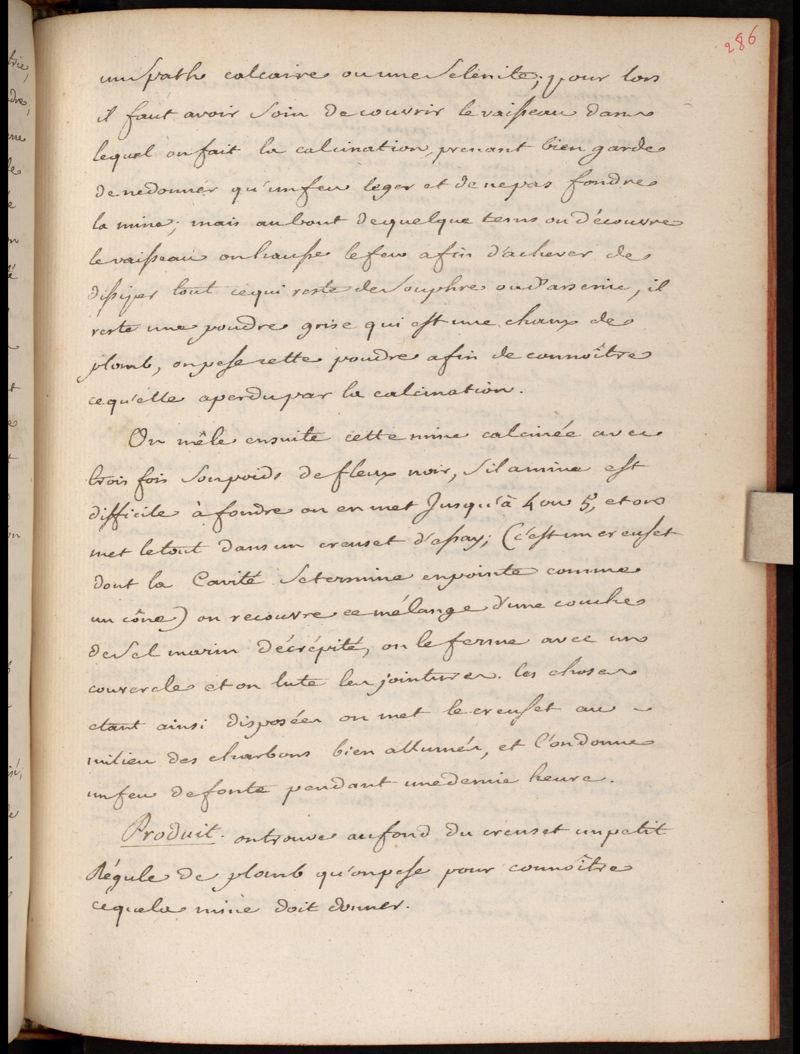 286
un Spath calcaire ou une Selénite; pour lors
il faut avoir Soin de couvrir le vaisseau dans
lequel on fait la calcination, prenant bien garde
de ne donner qu'un feu leger et de ne pas fondre
la mine; mais au bout de quelque tems on découvre
le vaisseau on hausse le feu afin d'achever de
dissiper tout ce qui reste de Souphre ou d'arsenic, il
reste une poudre grise qui est une chaux de
plomb, on pese cette poudre afin de connoître
ce qu'elle a perdu par la calcination.
On mêle ensuite cette mine calcinée avec
trois fois Son poids de flux noir, Si la mine est
difficile à fondre on en met Jusqu'à 4 ou 5, et on
met le tout dans un creuset d'essay; (c'est un creuset
dont la Cavité Se termine en pointe comme
un cône) on recouvre ce mélange d'une couche
de Sel marin décrépité, on le ferme avec un
couvercle et on lute les jointures. les choses
etant ainsi disposées on met le creuset au
milieu des charbons bien allumés, et l'on donne
un feu de fonte pendant une demie heure.
Produit. on trouve au fond du creuset un petit
Régule de plomb qu'on pese pour connoître
ce que la mine doit donner.